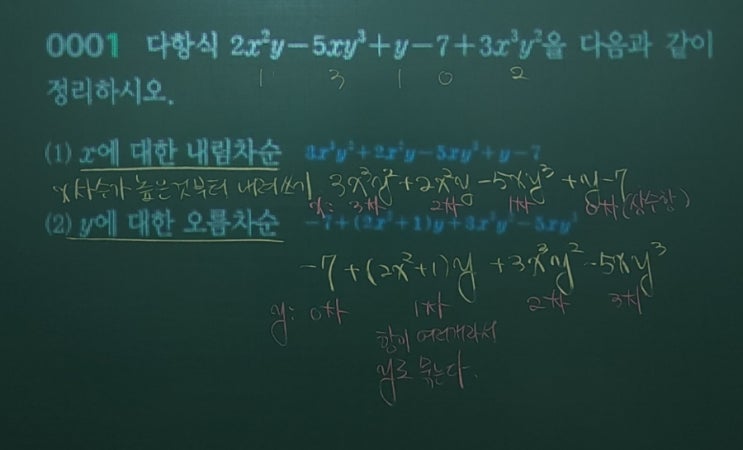 0001 다항식 2x²y-5xy³+y-7+3x³y²을 다음과 같이
1 3 1 0 2
정리하시오.
(1) x에 대한 내림차순 3x³y²+2x²y-5xy³+y-7
x차수가 높은것부터 내려쓰기 3x³y²+2x²y-5xy³+y-7
x: 3차 2차 1차 0차(상수항)
(2) y에 대한 오름차순 -7+(2x²+1)y+3x³y²-5xy³
-7+(2x²+1)y+3x³y²-5xy³
y: 0차 1차 2차 3차
항이 여러개라서
y로 묶는다.